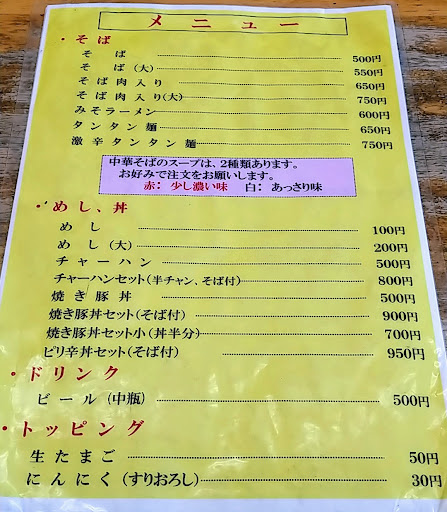 メニュー
・そば
そば 500円
そば(大) 550円
そば肉入り 650円
そば肉入り(大) 750円
みそラーメン 600円
タンタン麺 650円
激辛タンタン麺 750円
中華そばのスープは、2種類あります。
お好みで注文をお願いします。
赤: 少し濃い味 白: あっさり味
・めし、丼
めし 100円
めし(大) 200円
チャーハン 500円
チャーハンセット(半チャン、そば付) 800円
焼き豚丼 500円
焼き豚丼セット(そば付) 900円
焼き豚丼セット小(丼半分) 700円
ピリ辛丼セット(そば付) 950円
・ドリンク
ビール(中瓶) 500円
・トッピング
生たまご 50円
にんにく(すりおろし) 30円